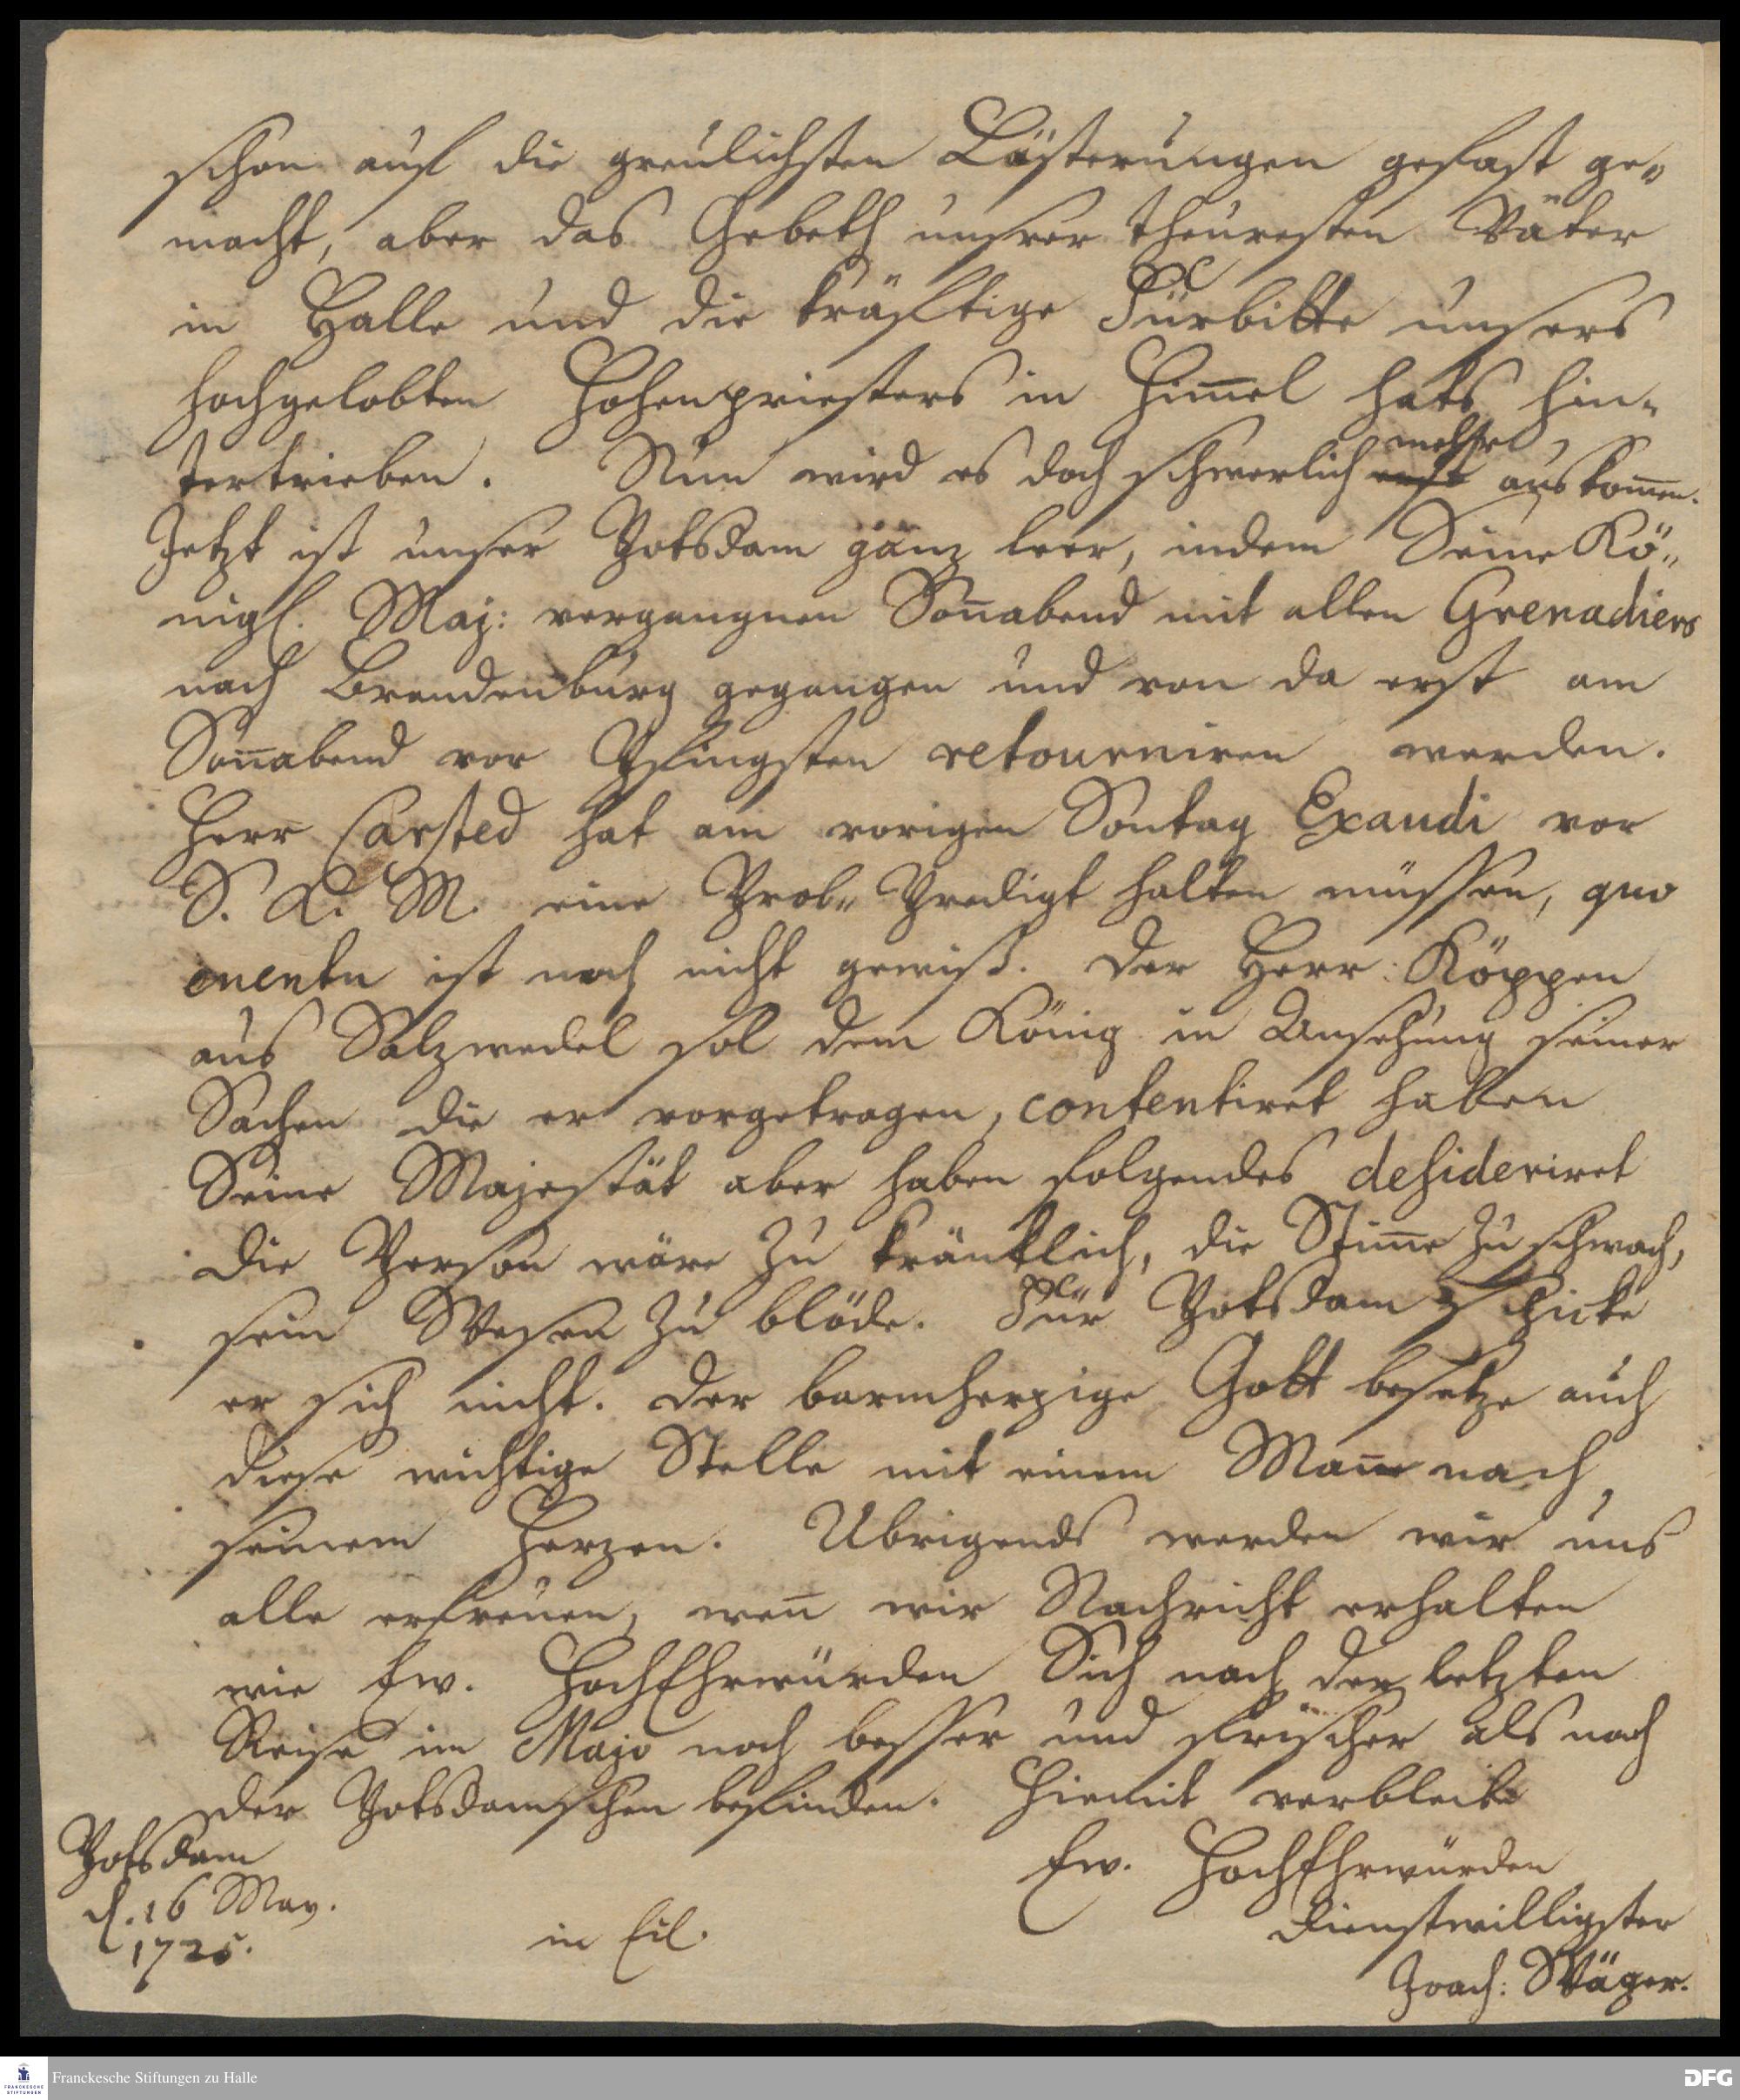 schon auf die greulichsten Lästerungen gefast ge-
macht, aber das Gebeth unsrer theuresten Väter
in Halle und die kräftige Fürbitte unsers
hochgelobten Hohenpriesters in Him̄el hats hin-
tertrieben. Nun wird es doch schwerlich mehr auskom̄en.
Jetzt ist unser Potsdam ganz leer, indem Seine Kö-
nigl. Maj: vergangnen Son̄abend mit allen Grenadiers
nach Brandenburg gegangen und von da erst am
Son̄abend vor Pfingsten retourniren werden.
Herr Carsted hat am vorigen Sontag Exaudi vor
S. K. M. eine Prob- Predigt halten müssen, quo
eventu ist noch nicht gewiß. Der Herr Köppen
aus Salzwedel sol dem König in Ansehung seiner
Sachen die er vorgetragen, contentiret haben
Seine Majestät aber haben folgendes desideriret
Die Person wäre zu kränklich, die Stim̄e zu schwach,
sein Wesen zu blöde. Für Potsdam schicke
er sich nicht. Der barmherzige Gott besetze auch
diese wichtige Stelle mit einem Man̄e nach
seinem Herzen. Ubrigends werden wir uns
alle erfreuen, wen̄ wir Nachricht erhalten
wie Ew. HochEhrwürden Sich nach der letzten
Reise im Majo noch besser und frischer als nach
der Potsdamschen befinden. Hiemit verbleibe
Ew. HochEhrwürden
dienstwilligster
Joach: Wäger.
Potsdam
d. 16 May.
1725.
in Eil.
Franckesche Stiftungen zu Halle
FRANCKESCHE
STIFTUNGEN
DFG